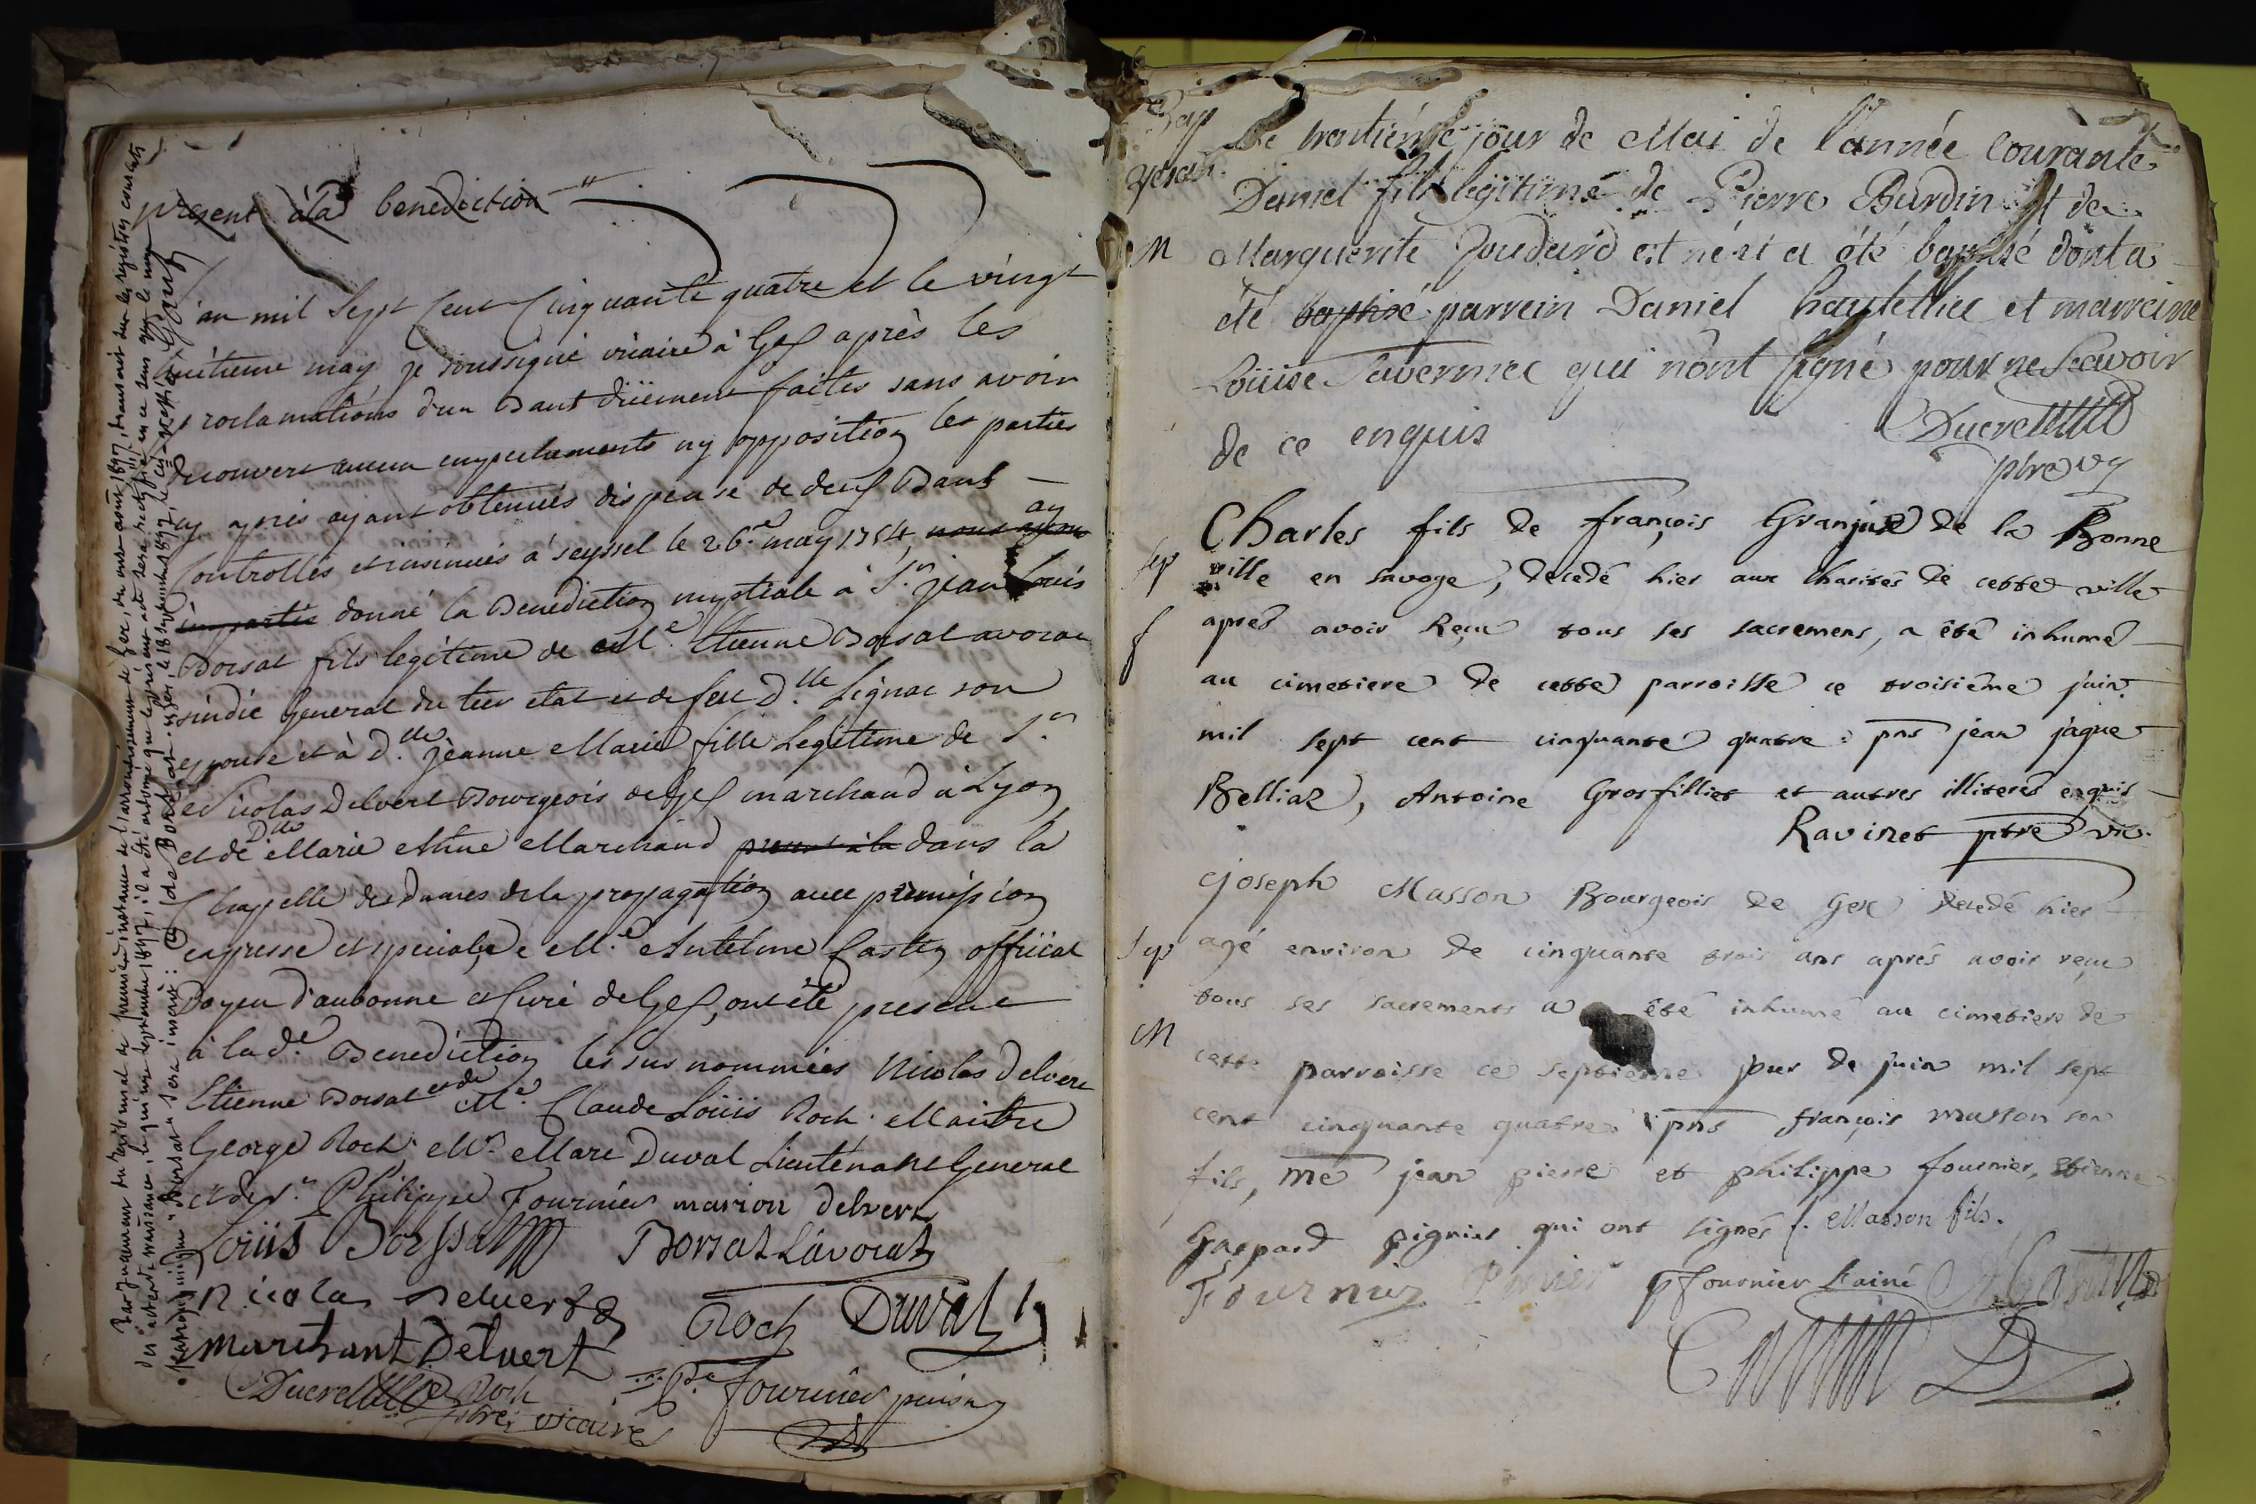 présent à la benediction
L'an mil sept cent cinquante quatre et le vingt
huitieme may je soussigné vicaire à Gex après les
proclamations d'un Bant düement faites sans avoir
decouvert aucun empechements ny opposition les parties
cy après ayant obtenuës dispense de deux Bants
Controllés et insinuées à seyssel le 26.e may 1754, nous ayons ay
imparti donné la Benediction nuptiale à S.r jean Louis
Borsat fils legitime de M.e Etienne Borsat avocat
sindic general du tier etat et de feu D.lle Lignac son
epouse et à D.lle jeanne Marie fille Legitime de S.r
Nicolas Delvert Bourgeois de Gex marchand à Lyon
et de D.lle Marie Marchand dans la
Chapelle des Dames de la propagation avec permission
expresse et speciale de M.e Antelme Castin official
Doyen d'aubonne et Curé de Gex, ont été present
à la d.e Benediction les sus nommées Nicolas Delvert
Etienne Borsat et de M.e Claude Loüis Roch Maitre
George Roch M.r Marc Duval Lieutenant General
et de S.r Philippe Fournier marion delvert
Loüis Borssat Borsat Lavocat
Nicolas Delvert
Roch Duval
marchant Delvert
Ducret Roch
fournier puisné
ptre vicaire
Par jugement du tribunal de première instance de l'arrondissement de Gex, du onze août 1897, transcrit sur les registres courants
des actes de naissance, le quinze septembre 1897, il a été ordonné que le présent acte sera rectifié en ce sens que le nom
patronymique "Borsat" sera inscrit: "de Borssat". Gex, le 18 septembre 1897, le greffier
Bap
M
Le trentiéme jour de Mai de l'année Courante
Daniel fils legitime de Pierre Burdin et de
Marguerite Joudard est né et a été baptisé dont a
été baptisé parrein Daniel et marreine
Loüise Tavernier qui n'ont signé pour ne sçavoir
de ce enquis
Ducret
ptre vic
Sep
f
Charles fils de françois Granjux de la Bonne
ville en savoye, decedé hier aux Charités de cette ville
apres avoir Reçu tous ses sacremens, a été inhumé
au cimetiere de cette parroisse ce troisième juin
mil sept cent cinquante quatre: pns jean jaque
Belliaz, Antoine Grosfilliet et autres illiterés enquis
Ravinet ptre vic.
Sep
M
Joseph Masson Bourgeois de Gex decedé hier
agé environ de cinquante trois ans aprés avoir reçu
tous ses sacrements a été inhumé au cimetiere de
cette parroisse ce septieme jour de juin mil sept
cent cinquante quatre. pns françois masson son
fils, me jean pierre et philippe fournier, Etienne
Gaspard pignier qui ont signés. Masson fils.
Fournier P fournier Lainé